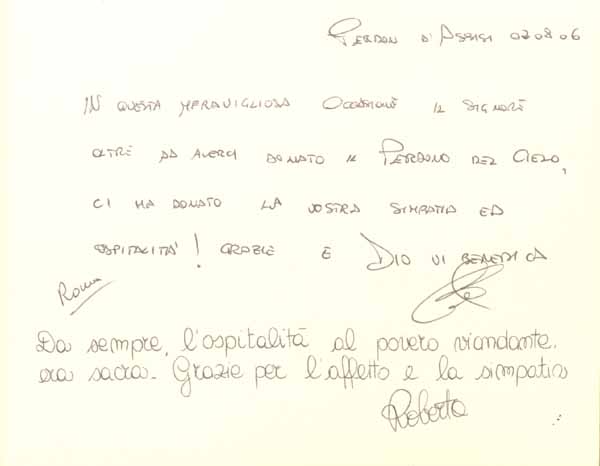 Perdon d'Assisi 020806
In questa meravigliosa occasione il Signore
oltre ad averci donato il Perdono del Cielo,
ci ha donato la vostra simpatia ed
ospitalità! Grazie e Dio vi benedica
Roma
Da sempre, l'ospitalità al povero viandante.
era sacra. Grazie per l'affetto e la simpatia
Roberta